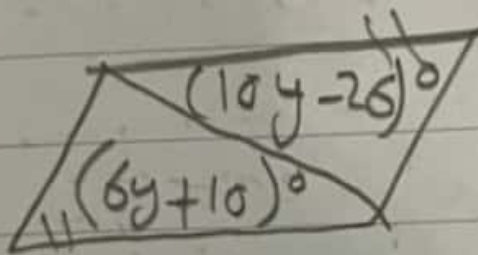 (10y-26)°
(6y+10)°